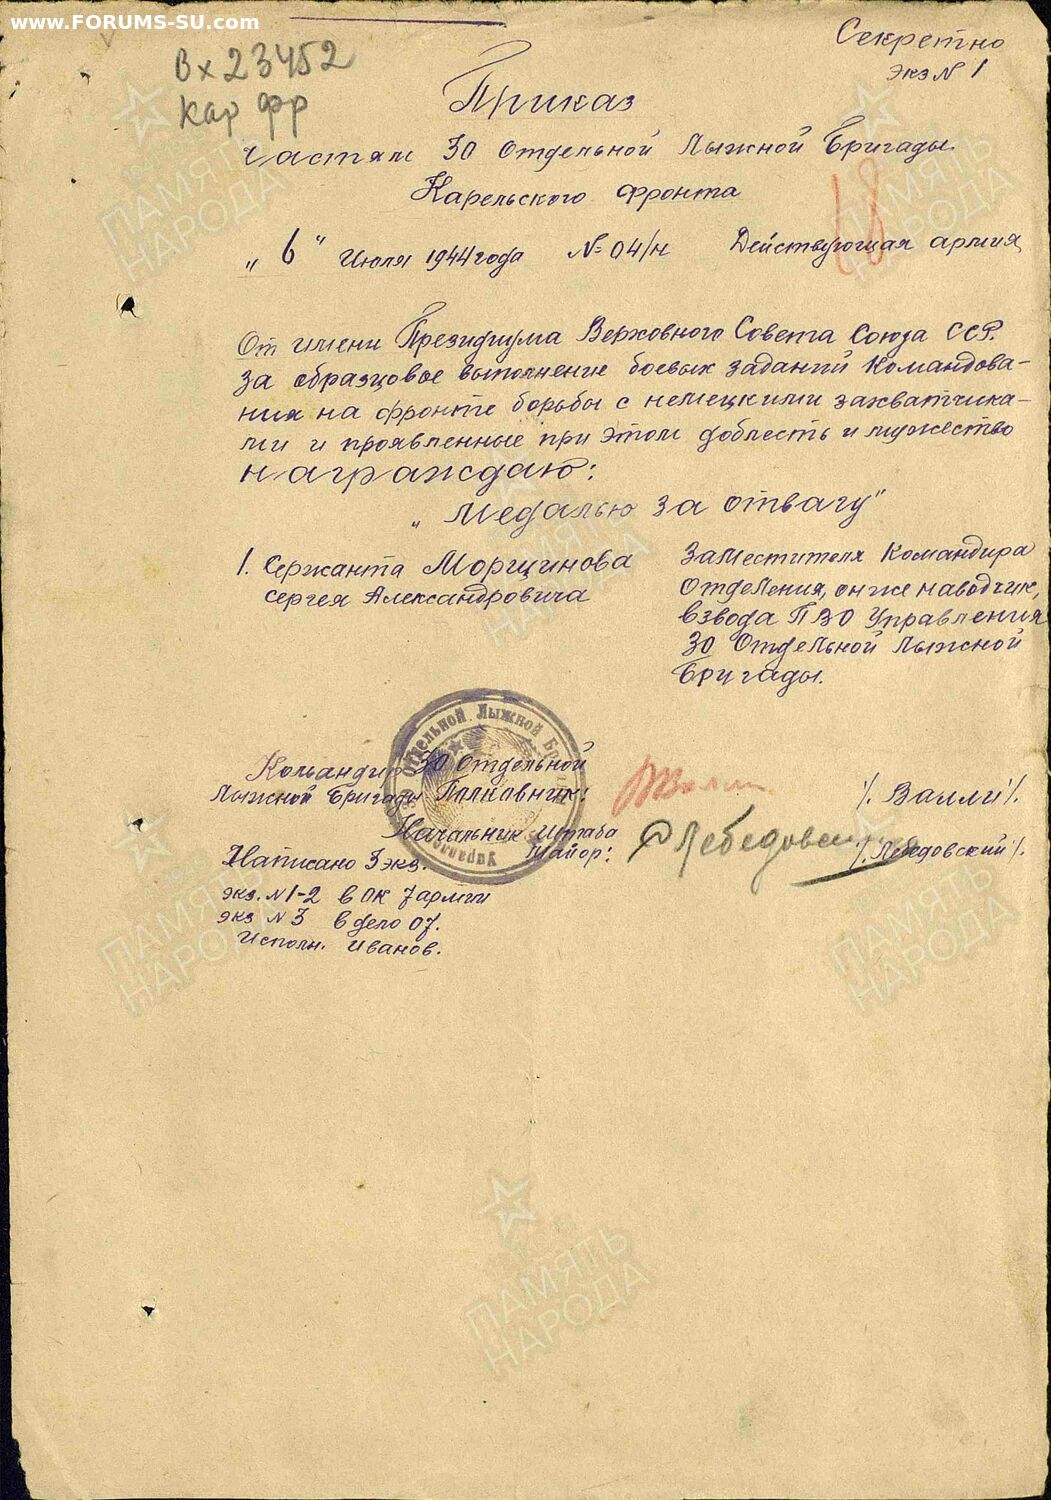 www.FORUMS-SU.com
Вх 23452
Кар фр
Секретно
экз N 1
Приказ
частям 30 Отдельной Лыжной Бригады
Карельского фронта
18
„6“ Июля 1944 года № 04/н Действующая армия
От имени Президиума Верховного Совета Союза ССР.
за образцовое выполнение боевых заданий Командова-
ния на фронте борьбы с немецкими захватчика-
ми и проявленные при этом доблесть и мужество
награждаю:
„Медалью за отвагу“
1. Сержанта Морщинова
Сергея Александровича
Заместителя Командира
Отделения, он же наводчик,
взвода ПВО Управления
30 Отдельной Лыжной
Бригады.
Командир 30 Отдельной
Лыжной Бригады Полковник:
/. Валли /.
Начальник Штаба
Майор:
Лебедовский
/. Лебедовский /.
Отдельной Лыжной
Написано 3 экз.
экз. N 1-2 в ОК 7 армии
экз N 3 в дело 07.
Исполн. Иванов.
ПАМЯТЬ НАРОДА
ПАМЯТЬ НАРОДА
ПАМЯТЬ НАРОДА
ПАМЯТЬ НАРОДА
ПАМЯТЬ НАРОДА
ПАМЯТЬ НАРОДА